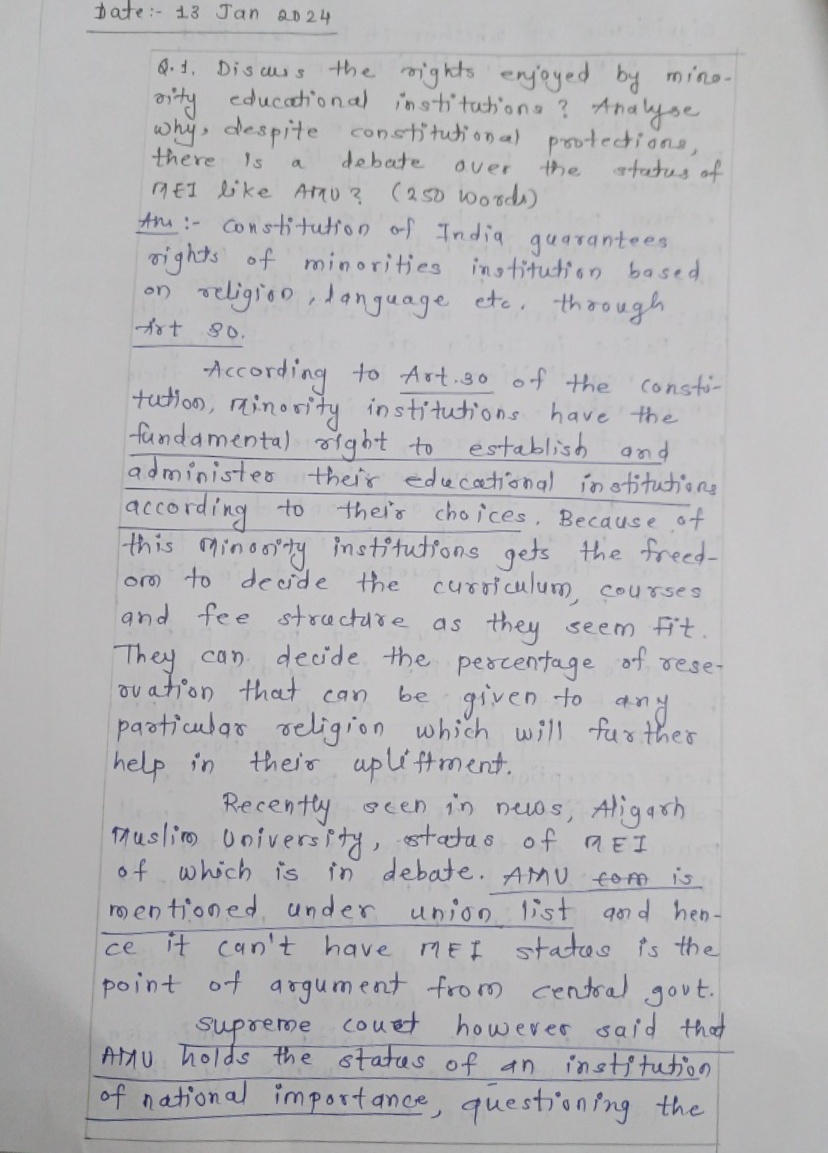 Date:- 13 Jan 2024
Q.1. Discuss the rights enjoyed by mino-
rity educational institutions? Analyse
why, despite constitutional protections,
there is a debate over the status of
MEI like AMU? (250 words)
Ans:- Constitution of India guarantees
rights of minorities institution based
on religion, language etc. through
Art 30.
According to Art.30 of the consti-
tution, minority institutions have the
fundamental right to establish and
administer their educational institutions
according to their choices. Because of
this minority institutions gets the freed-
om to decide the curriculum, courses
and fee structure as they seem fit.
They can decide the percentage of rese-
rvation that can be given to any
particular religion which will further
help in their upliftment.
Recently seen in news, Aligarh
Muslim University, status of MEI
of which is in debate. AMU is
mentioned under union list and hen-
ce it can't have MEI status is the
point of argument from central govt.
Supreme court however said that
AMU holds the status of an institution
of national importance, questioning the